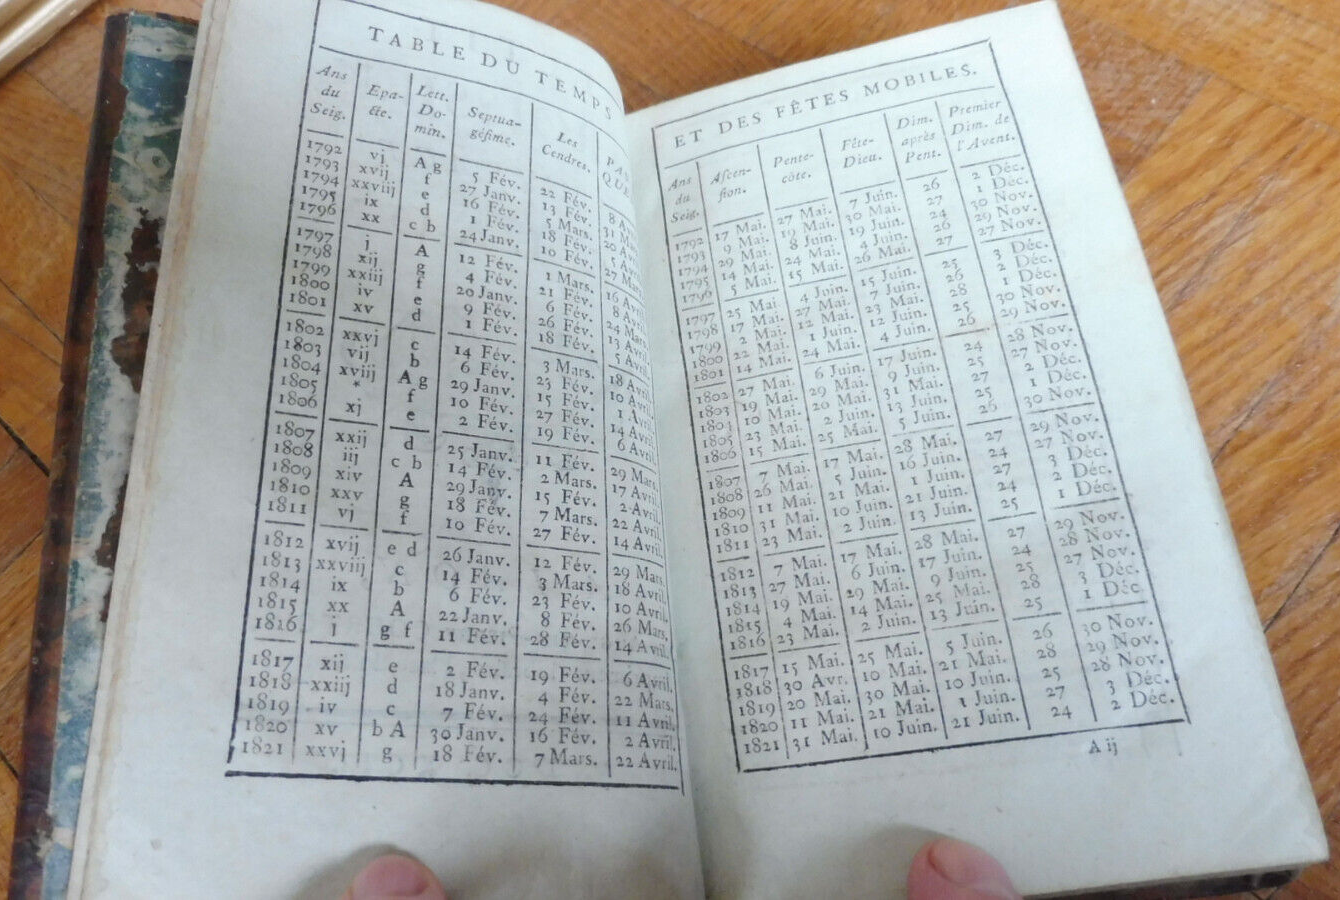 TABLE DU TEMPS
Ans du Seig. Epacte. Lett. Domin. Septuagésime. Les Cendres. PA QUE
1792 vj A g 5 Fév. 22 Fév. 8 A
1793 xvij f 27 Janv. 13 Fév. 31 Ma
1794 xxviij e 16 Fév. 5 Mars. 20 A
1795 ix d 1 Fév. 18 Fév. 5 Avr
1796 xx c b 24 Janv. 10 Fév. 27 Mar
1797 j A 12 Fév. 1 Mars. 16 Avri
1798 xij g 4 Fév. 21 Fév. 8 Avri
1799 xxiij f 20 Janv. 6 Fév. 24 Mars
1800 iv e 9 Fév. 26 Fév. 13 Avril
1801 xv d 1 Fév. 18 Fév. 5 Avril
1802 xxvj c 14 Fév. 3 Mars. 18 Avril
1803 vij b 6 Fév. 23 Fév. 10 Avril
1804 xviij A g 29 Janv. 15 Fév. 1 Avril
1805 * f 10 Fév. 27 Fév. 14 Avril
1806 xj e 2 Fév. 19 Fév. 6 Avril.
1807 xxij d 25 Janv. 11 Fév. 29 Mars.
1808 iij c b 14 Fév. 2 Mars. 17 Avril.
1809 xiv A 29 Janv. 15 Fév. 2 Avril.
1810 xxv g 18 Fév. 7 Mars. 22 Avril.
1811 vj f 10 Fév. 27 Fév. 14 Avril.
1812 xvij e d 26 Janv. 12 Fév. 29 Mars.
1813 xxviij c 14 Fév. 3 Mars. 18 Avril.
1814 ix b 6 Fév. 23 Fév. 10 Avril.
1815 xx A 22 Janv. 8 Fév. 26 Mars.
1816 j g f 11 Fév. 28 Fév. 14 Avril.
1817 xij e 2 Fév. 19 Fév. 6 Avril.
1818 xxiij d 18 Janv. 4 Fév. 22 Mars.
1819 iv c 7 Fév. 24 Fév. 11 Avril.
1820 xv b A 30 Janv. 16 Fév. 2 Avril.
1821 xxvj g 18 Fév. 7 Mars. 22 Avril.
ET DES FÊTES MOBILES.
Ans du Seig. Ascension. Pentecôte. Fête-Dieu. Dim. après Pent. Premier Dim. de l'Avent.
1792 17 Mai. 27 Mai. 7 Juin. 26 2 Déc.
1793 9 Mai. 19 Mai. 30 Mai. 27 1 Déc.
1794 29 Mai. 8 Juin. 19 Juin. 24 30 Nov.
1795 14 Mai. 24 Mai. 4 Juin. 26 29 Nov.
1796 5 Mai. 15 Mai. 26 Mai. 27 27 Nov.
1797 25 Mai. 4 Juin. 15 Juin. 25 3 Déc.
1798 17 Mai. 27 Mai. 7 Juin. 26 2 Déc.
1799 2 Mai. 12 Mai. 23 Mai. 28 1 Déc.
1800 22 Mai. 1 Juin. 12 Juin. 25 30 Nov.
1801 14 Mai. 24 Mai. 4 Juin. 26 29 Nov.
1802 27 Mai. 6 Juin. 17 Juin. 24 28 Nov.
1803 19 Mai. 29 Mai. 9 Juin. 25 27 Nov.
1803 10 Mai. 20 Mai. 31 Mai. 27 2 Déc.
1805 23 Mai. 2 Juin. 13 Juin. 25 1 Déc.
1806 15 Mai. 25 Mai. 5 Juin. 26 30 Nov.
1807 7 Mai. 17 Mai. 28 Mai. 27 29 Nov.
1808 26 Mai. 5 Juin. 16 Juin. 24 27 Nov.
1809 11 Mai. 21 Mai. 1 Juin. 27 3 Déc.
1810 31 Mai. 10 Juin. 21 Juin. 24 2 Déc.
1811 23 Mai. 2 Juin. 13 Juin. 25 1 Déc.
1812 7 Mai. 17 Mai. 28 Mai. 27 29 Nov.
1813 27 Mai. 6 Juin. 17 Juin. 24 28 Nov.
1814 19 Mai. 29 Mai. 9 Juin. 25 27 Nov.
1815 4 Mai. 14 Mai. 25 Mai. 28 3 Déc.
1816 23 Mai. 2 Juin. 13 Juin. 25 1 Déc.
1817 15 Mai. 25 Mai. 5 Juin. 26 30 Nov.
1818 30 Avr. 10 Mai. 21 Mai. 28 29 Nov.
1819 20 Mai. 30 Mai. 10 Juin. 25 28 Nov.
1820 11 Mai. 21 Mai. 1 Juin. 27 3 Déc.
1821 31 Mai. 10 Juin. 21 Juin. 24 2 Déc.
A ij